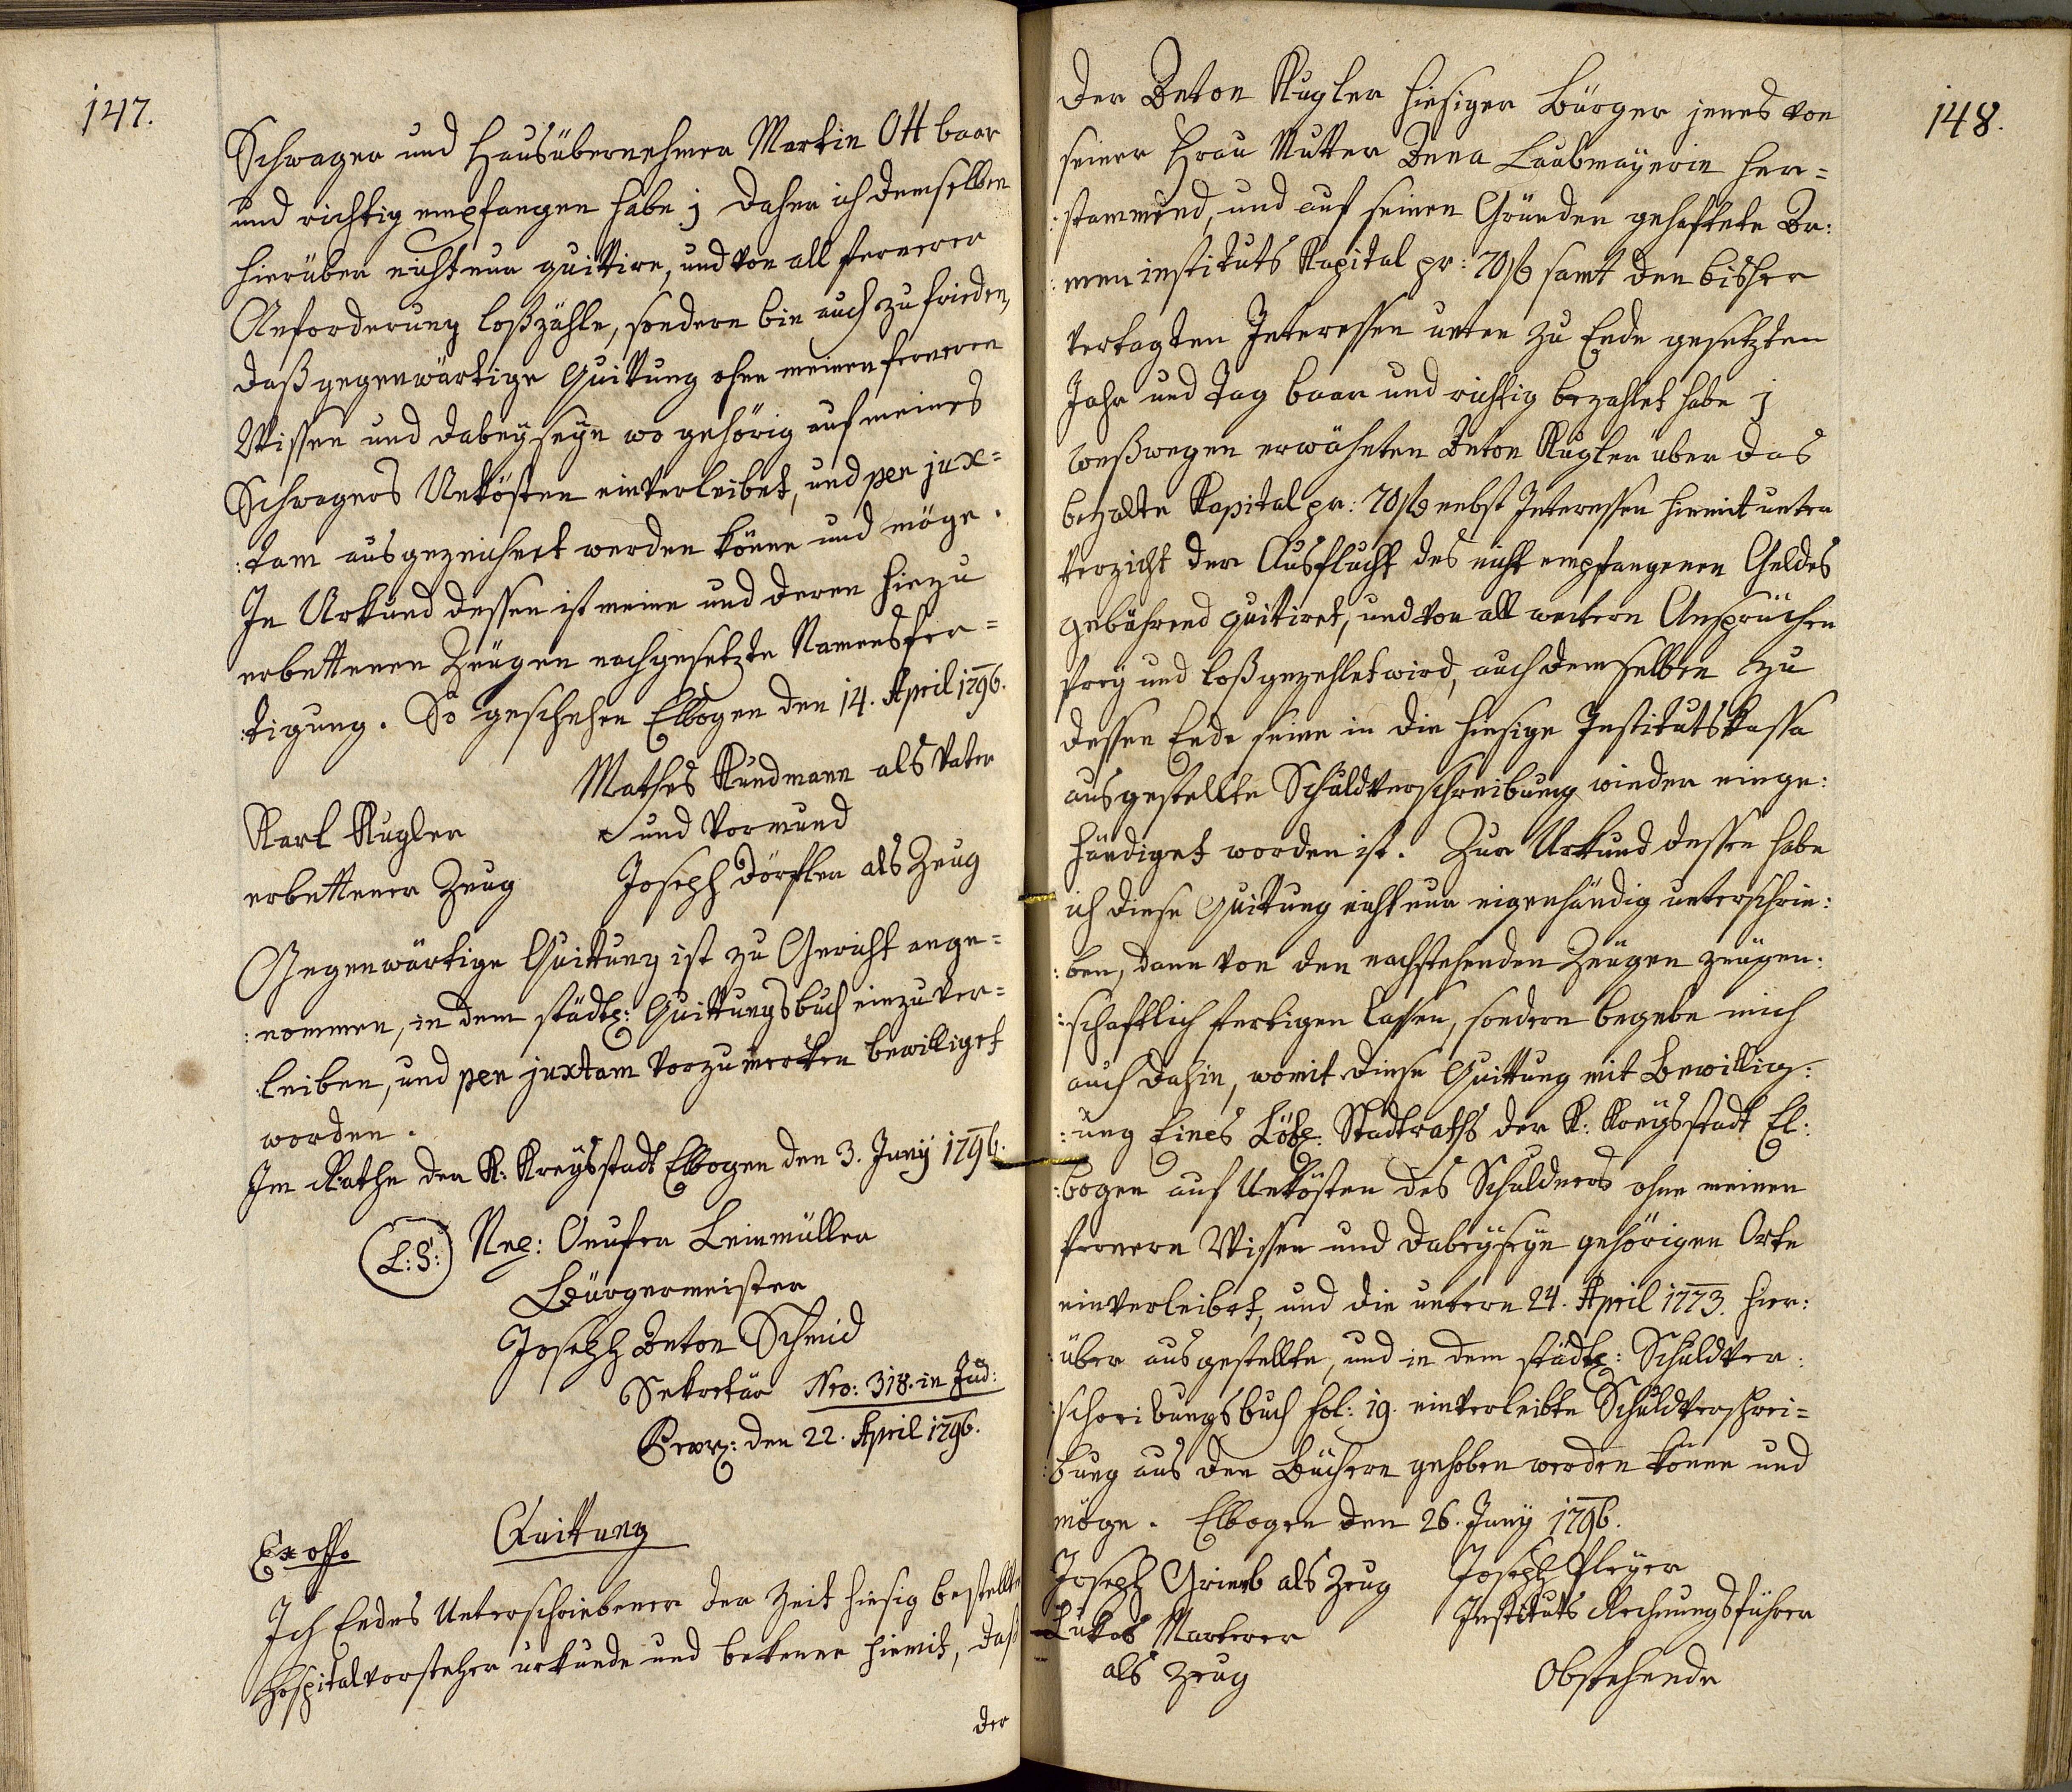 147.
Schwager und Hausübernehmer Martin Ott baar
und richtig empfangen habe; daher ich demselben
hierüber nicht nur quittire, und von all fernerer
Anforderung loßzähle, sondern bin auch zu frieden,
daß gegenwärtige Quittung ohne meinen ferneren
Wissen und dabeyseyn wo gehörig auf meines
Schwagers Unkösten einverleibet, und per jux=
:tam ausgezeichnet werden könne und möge.
In Urkund dessen ist meine und deren hiezu
erbettenen Zeugen nachgesetzte Namensfer=
:tigung. So geschehen Elbogen den 14. April 1796.
Mathes Kundmann als Vater
und Vormund
Karl Kugler
erbettener Zeug
Joseph Dörfler als Zeug
Gegenwärtige Quittung ist zu Gericht ange=
:nommen, in dem städt: Quittungsbuch einzuver=
:leiben, und per juxtam vorzumerken bewilliget
worden.
Im Rathe der K: Kreysstadt Elbogen den 3. Juny 1796.
L: S: Onufer Leinmüller
Bürgermeister
Joseph Anton Schmid
Sekretär Nro: 318. in Jud:
den 22. April 1796.
Ex offo Quittung
Ich Endes Unterschriebener der Zeit hiesig bestellte
Hospitalvorsteher urkunde und bekenne hiemit, daß
der
148.
der Anton Kugler hiesiger Bürger jenes von
seiner Frau Mutter Anna Laubmayerin her=
:stammend, und auf seinen Gründen gehaftete Ar:
:men instituts Kapital pr: 70 f samt den bisher
vertagten Interessen unten zu Ende gesetzten
Jahr und Tag baar und richtig bezahlet habe;
weßwegen erwähnten Anton Kugler über das
bezalte Kapital pr: 70 f nebst Interessen hiemit unter
Verzicht der Ausflucht des nicht empfangenen Geldes
gebührend quitiret, und von all weitern Ansprüchen
frey und loßgezehlet wird, auch demselben zu
dessen Ende seine in die hiesige Institutskassa
ausgestellte Schuldverschreibung wieder einge:
händiget worden ist. Zur Urkund dessen habe
ich diese Quittung nicht nur eigenhändig unterschrie:
:ben, dann von den nachstehenden Zeugen zeugen:
:schaftlich fertigen lassen, sondern begebe mich
auch dahin, womit diese Quittung mit Bewillig:
:ung Eines Löbl: Stadtraths der K: Kreysstadt El:
:bogen auf Unkösten des Schuldners ohne meinen
fernern Wissen und dabeyseyn gehörigen Orte
einverleibet, und die untern 24. April 1773. hier:
:über ausgestellte, und in dem städt: Schuldver:
:schreibungsbuch fol: 19. einverleibte Schuldverschrei=
:bung aus den Büchern gehoben werden könne und
möge. Elbogen den 26. Juny 1796.
Joseph als Zeug
Joseph Pleyer
Instituts Rechnungsführer
Lukas Marterer
als Zeug
Obstehende